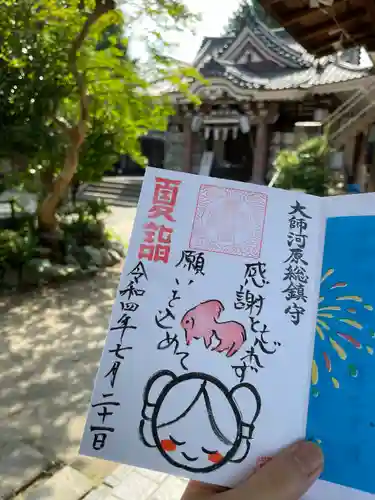 大師河原総鎮守
感謝と忘れず
願いを込めて
夏詣
令和四年七月二十一日